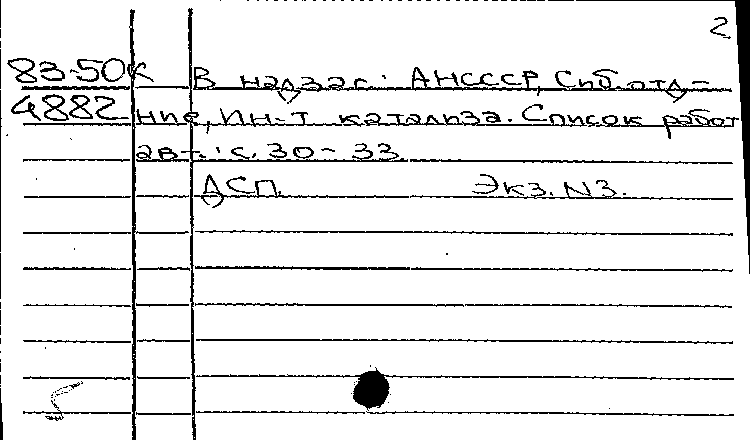 2
83-50К В надзаг.: АН СССР, Сиб. отд-
4882 ние, Ин-т катализа. Список работ
авт.: с. 30-33.
ДСП. Экз. N3.
5